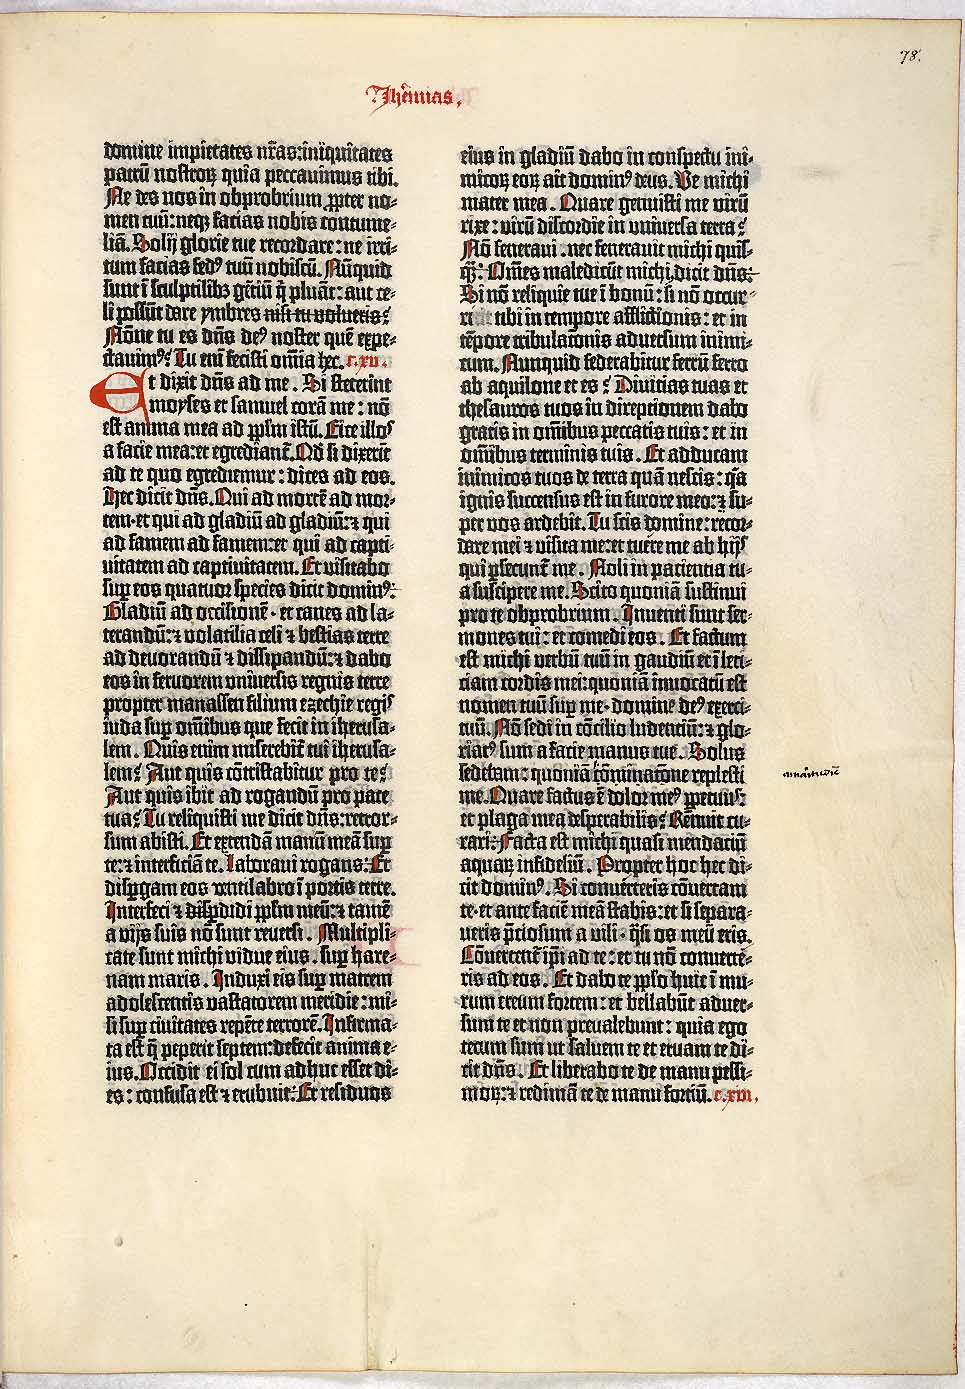 78.
Jheremias.
domine impietates nr̄as: iniquitates
patrū nostroꝝ quia peccavimus tibi.
Ne des nos in obprobrium ꝓpter no-
men tuū: neqꝫ facias nobis contume-
liā. Solij glorie tue recordare: ne irri-
tum facias fedꝰ tuū nobiscū. Nūquid
sunt ī sculptilibꝫ gētiū q̄ pluāt: aut ce-
li possūt dare ymbres nisi tu volueris?
Nōne tu es dn̄s deꝰ noster quē expe-
ctavimꝰ? Tu enī fecisti om̄ia hec. c. xv.
Et dixit dn̄s ad me. Si steterint
moyses et samuel corā me: nō
est anima mea ad ppl̄m istū. Eice illoꝰ
a facie mea: et egrediant̄. Qd̄ si dixerīt
ad te quo egrediemur: dices ad eos.
Hec dicit dn̄s. Qui ad mortē ad mor-
tem: et qui ad gladiū ad gladiū: ⁊ qui
ad famem ad famem: et qui ad capti-
vitatem ad captivitatem. Et visitabo
suꝑ eos quatuor species dicit dominꝰ:
Gladiū ad occisionē: et canes ad la-
cerandū: ⁊ volatilia celi ⁊ bestias terre
ad devorandū ⁊ dissipandū: ⁊ dabo
eos in fervorem universis regnis terre
propter manassen filium ezechie regis
iuda suꝑ om̄ibus que fecit in iherusa-
lem. Quis enim miserebit̄ tui iherusa-
lem? Aut quis cōtristabitur pro te?
Aut quis ibit ad rogandū pro pace
tua? Tu reliquisti me dicit dn̄s: retror-
sum abisti. Et extendā manū meā suꝑ
te: ⁊ interficiā te. Laboravi rogans: Et
disꝑgam eos ventilabro ī portis terre.
Interfeci ⁊ disꝑdidi ppl̄m meū: ⁊ tamē
a vijs suis nō sunt reversi. Multipli-
cate sunt michi vidue eius. suꝑ hare-
nam maris. Induxi eis suꝑ matrem
adolescentis vastatorem meridie: mi-
si suꝑ civitates repēte terrorē. Infirma-
ta est q̄ peperit septem: defecit anima e-
ius. Occidit ei sol cum adhuc esset di-
es: confusa est ⁊ erubuit: Et residuos
eius in gladiū dabo in conspectu ini-
micoꝝ eoꝝ ait dominꝰ deus. Ve michi
mater mea. Quare genuisti me virū
rixe: virū discordie in universa terra?
Nō feneravi. nec feneravit michi quis-
q̄: Om̄es maledicūt michi, dicit dn̄s:
Si nō reliquie tue ī bonū: si nō occur-
ri tibi in tempore afflictionis: et in
tēpore tribulationis adversum inimi-
cum. Nunquid federabitur ferrū ferro
ab aquilone et es? Divitias tuas et
thesauros tuos in direptionem dabo
gratis in om̄ibus peccatis tuis: et in
om̄ibus terminis tuis. Et adducam
inimicos tuos de terra quā nescis: q̄a
ignis succensus est in furore meo: ⁊ su-
per vos ardebit. Tu scis domine: recor-
dare mei ⁊ visita me: et tuere me ab hijs
qui ꝑsecunt̄ me. Noli in patientia tu-
a suscipere me. Scito quoniā sustinui
pro te obprobrium. Inventi sunt ser-
mones tui: et comedi eos. Et factum
est michi verbū tuū in gaudiū et ī leti-
ciam cordis mei: quoniā invocatū est
nomen tuū suꝑ me. domine deꝰ exerci-
tuū. Nō sedi in cōcilio ludenciū: ⁊ glo-
riatꝰ sum a facie manus tue. Solus
sedebam: quoniā cōminacōne replesti
me. Quare factus ē dolor meꝰ ꝑpetuꝰ:
et plaga mea desperabilis? Renuit cu-
rari: Facta est michi quasi mendaciū
aquaꝝ infideliū. Propter hoc hec di-
cit dominꝰ. Si converteris cōvertam
te: et ante faciē meā stabis: et si separa-
veris p̄ciosum a vili. q̄si os meū eris.
Cōvertent̄ ip̄i ad te: et tu nō converte-
ris ad eos. Et dabo te pplo huic ī mu-
rum ereum fortem: et bellabūt adver-
sum te et non prevalebunt: quia ego
tecum sum ut salvem te et eruam te di-
cit dn̄s. Et liberabo te de manu pessi-
moꝝ: ⁊ redimā te de manu fortiū. c. xvi.